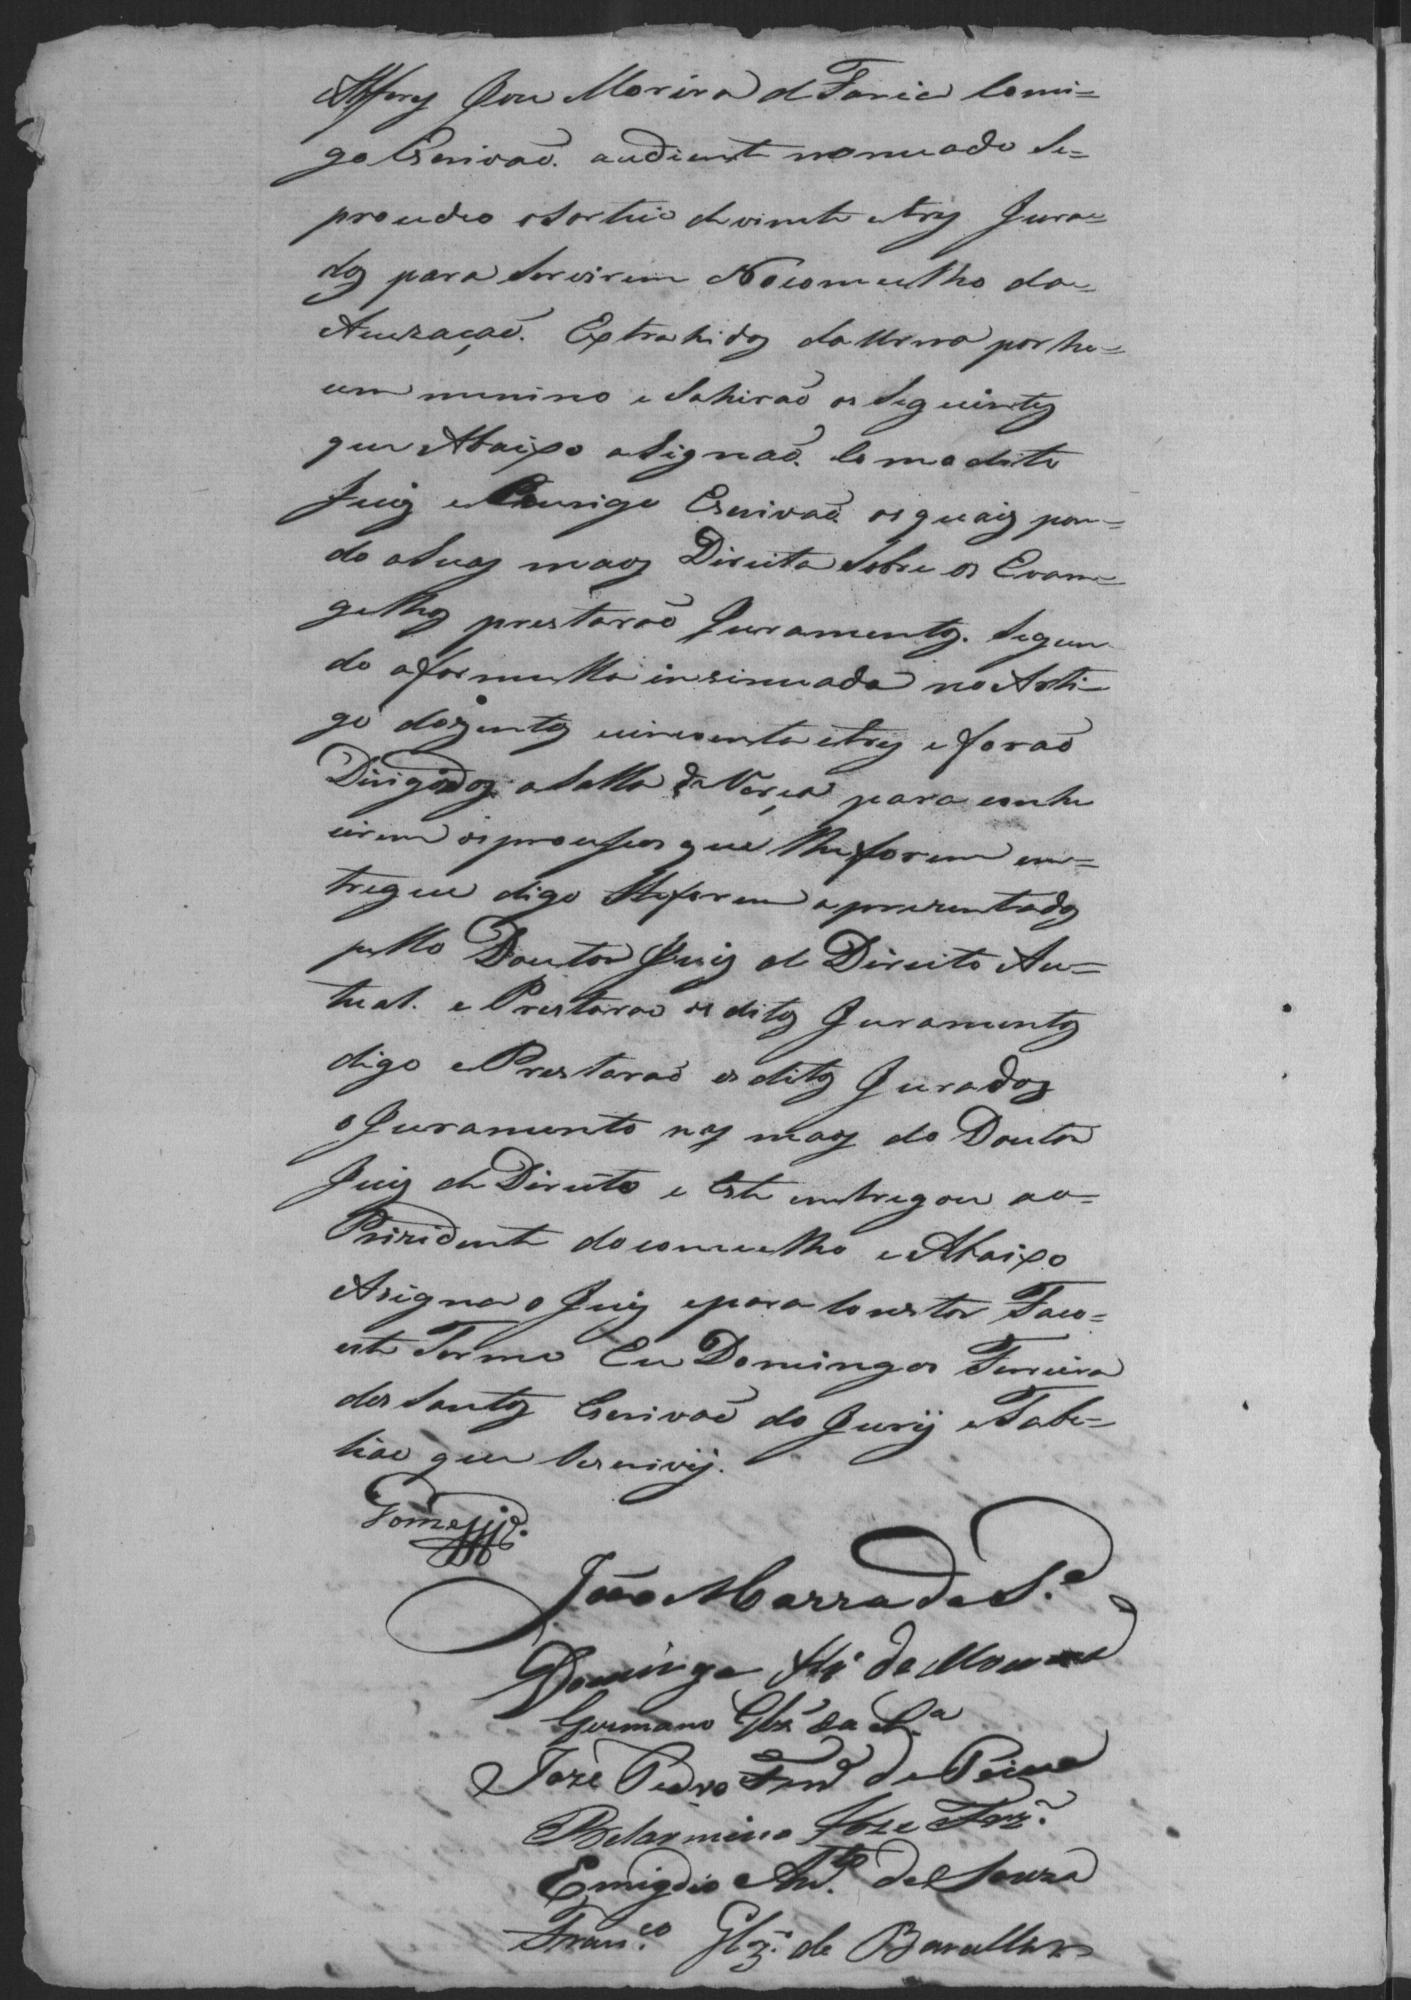 Alfery Joze Moreira de Faria Comi=
go Escrivaõ. audient nomeado Se=
procedeo oSorteio devinte etrez Jura=
dos para Servirem Noconcelho da
Acuzaçaõ. Extrahidos da Urna por hu=
um menino e Sahiraõ os Seguintes
que Abaixo aSignaõ. Como dito
Juiz e Comigo Escrivaõ os quaiz pon=
do aSuas maos Direita Sobre os Evan=
gelhos prestaraõ Juramento. Segun
do aformulla insinuada no Arti
go dozentos cincoenta etrez e foraõ
Dirigidos a Salla para conhe
cirem os proceSsos que lhe forem en=
tregue digo lhe forem aprezentados
pello Doutor Juiz de Direito Au=
tual. e Prestaraõ os ditos Juramentos
digo e Prestaraõ os ditos Jurados
o Juramento nas maos do Doutor
Juiz de Direito e Este entregou ao=
Prizidente doconcelho e Abaixo
Asigna o Juiz e para Constar Faço=
este Termo Eu Domingos Ferreira
dos Santos Escrivaõ do Jurij e Tabe=
liao que Escrevij.
João Marra da S.ª
Domingos de
Germano Glz' da S.ª
Jozé Pedro de
Belarmino Joze
Emigdio Ant.º de Souza
Fran.co Glz. de